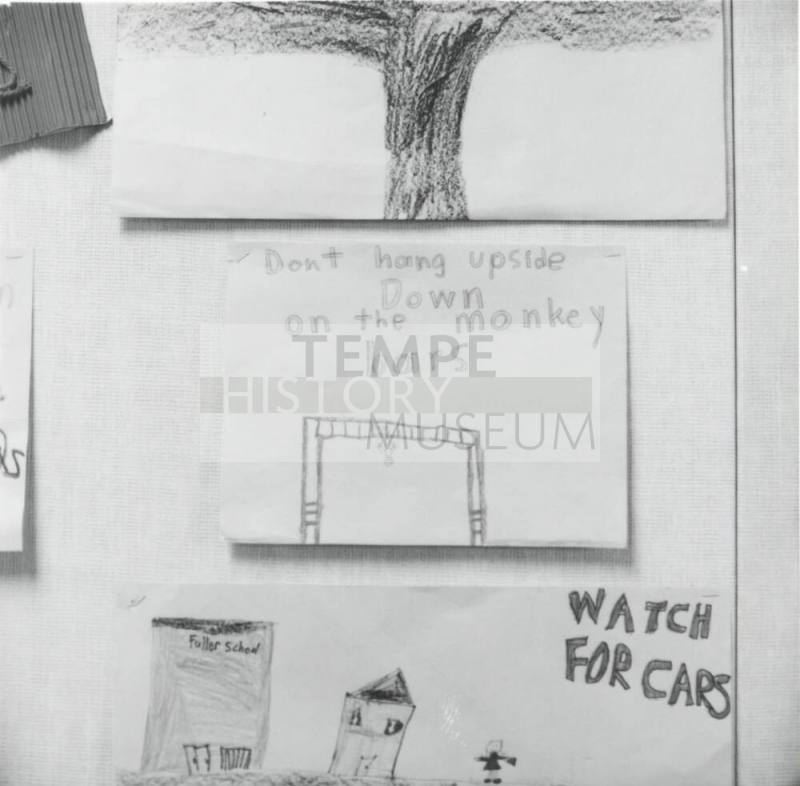 Dont hang upside
Down
on the monkey
bars
TEMPE
HISTORY
MUSEUM
WATCH
FOR CARS
Fuller School